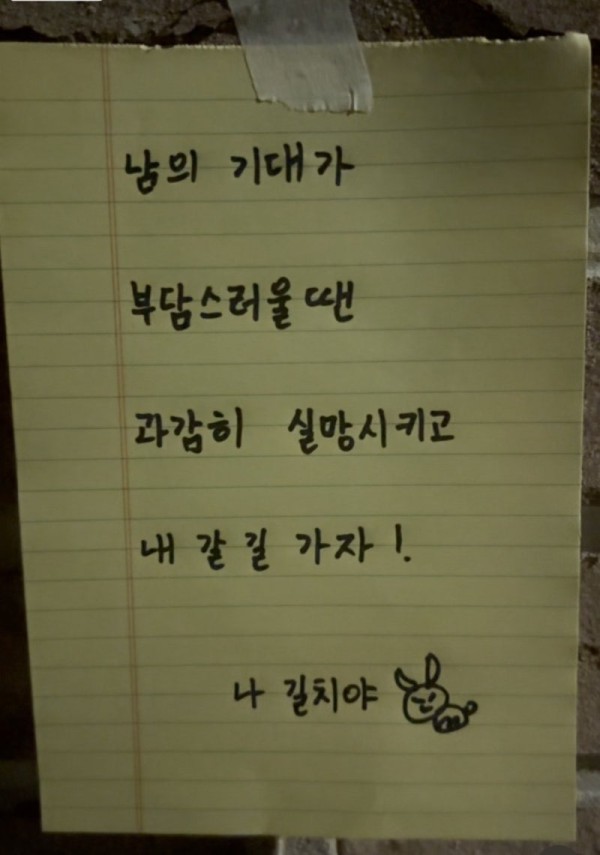 남의 기대가
부담스러울땐
과감히 실망시키고
내 갈 길 가자!
나 길치야